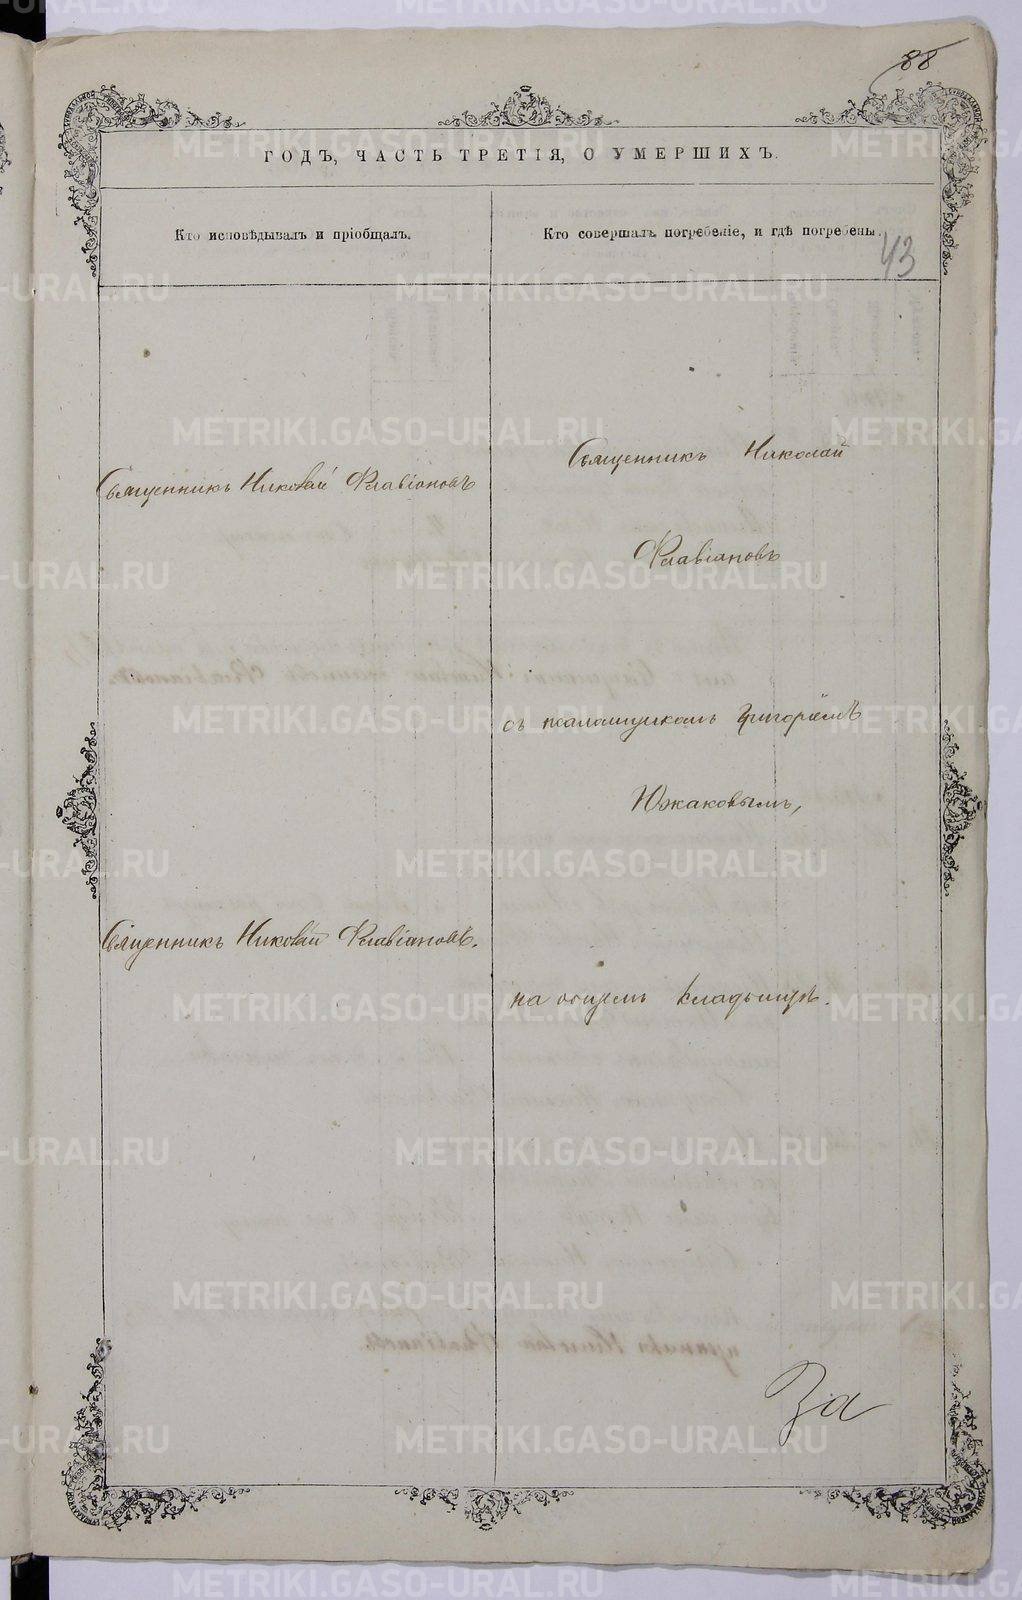 88
ГОДЪ, ЧАСТЬ ТРЕТІЯ, О УМЕРШИХЪ.
Кто исповѣдывалъ и пріобщалъ.
Кто совершалъ погребеніе, и гдѣ погребены.
43
Священникъ Николай Флавіановъ
Священникъ Николай
Флавіановъ
съ псаломщикомъ Григоріемъ
Южаковымъ,
Священникъ Николай Флавіановъ.
на общемъ кладбищѣ.
За
METRIKI.GASO-URAL.RU